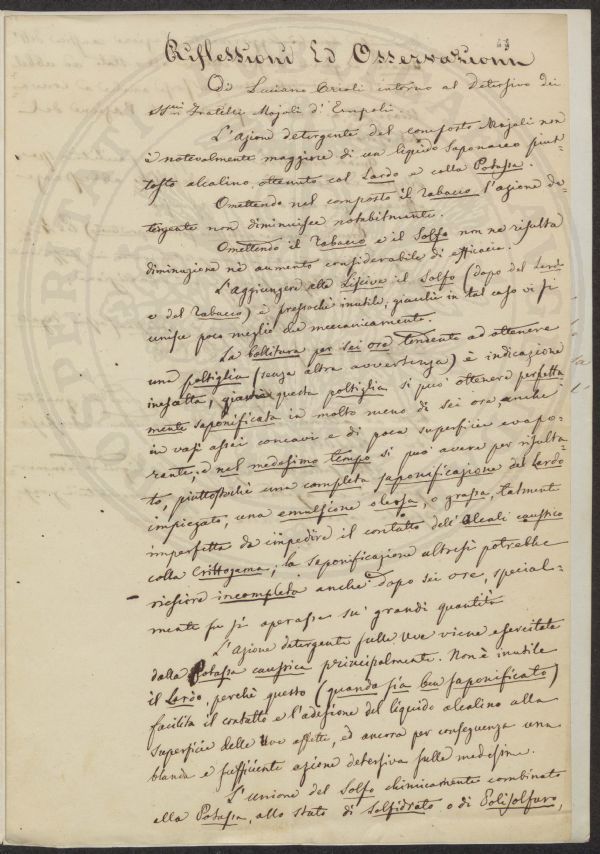 Riflessioni Ed Osservazioni
Di Luciano intorno al Detersivo dei
Fratelli Majoli d'Empoli.
L'Azione detergente del composto Majoli non
è notevolmente maggiore di un liquido saponaceo piut-
tosto alcalino, ottenuto col Lardo e colla Potassa.
Omettendo nel composto il Tabacco l'azione de-
tergente non diminuisce notabilmente.
Omettendo il Tabacco e il Solfo non ne risulta
diminuzione nè aumento considerabile di efficacia.
L'aggiungere alla Lisciva il Solfo (dopo del Lardo
e del Tabacco) è pressochè inutile, giacchè in tal caso vi si
unisce poco meglio che meccanicamente.
La bollitura per sei ore tendente ad ottenere
una poltiglia (senza altra avvertenza) è indicazione
inesatta, giacchè questa poltiglia si può ottenere perfetta
mente saponificata in molto meno di sei ore, anche
in vasi assai concavi e di poca superficie evapo-
rante, e nel medesimo tempo si può avere per risulta-
to, piuttostochè una completa saponificazione del Lardo
impiegato, una emulsione oleosa, o grassa, talmente
imperfetta da impedire il contatto dell'Alcali caustico
colla Crittogama; la saponificazione altresì potrebbe
riescire incompleta anche dopo sei ore, special-
mente se si operasse su' grandi quantità
L'Azione detergente sulle Uve viene esercitata
dalla Potassa caustica principalmente. Non è inutile
il Lardo, perchè questo (quando sia ben saponificato)
facilita il contatto e l'adesione del liquido alcalino alla
superficie delle Uve affette, ed ancora per conseguenza una
blanda e sufficiente azione detersiva sulle medesime.
L'unione del Solfo chimicamente combinato
alla Potassa, allo stato di Solfidrato o di Polisolfuro,